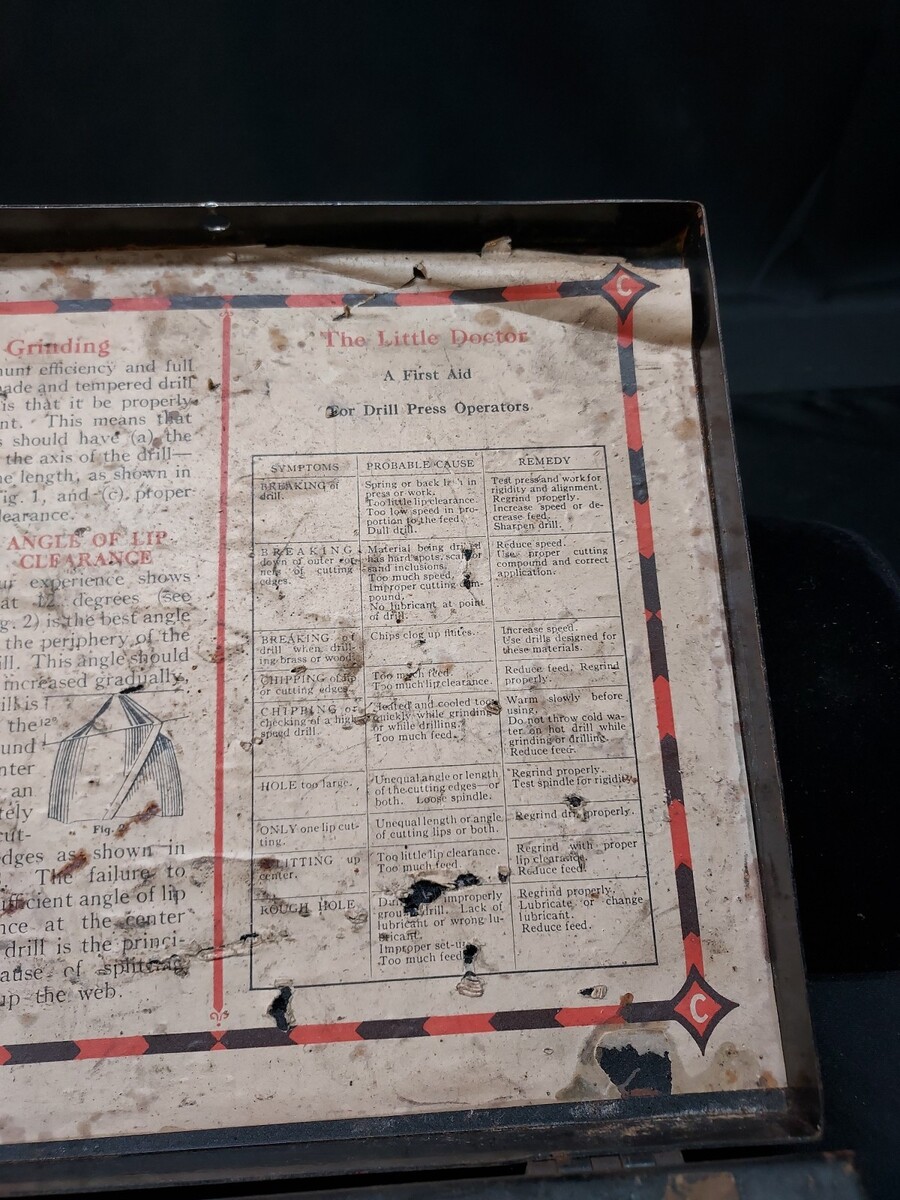 Grinding
efficiency and full
and tempered drill
is that it be properly
This means that
should have (a) the
the axis of the drill—
length, as shown in
1, and (c), proper
ANGLE OF LIP
CLEARANCE
experience shows
12 degrees (see
2) is the best angle
the periphery of the
This angle should
increased gradually,
is
the
12°
an
Fig.
cut-
edges as shown in
The failure to
angle of lip
at the center
drill is the princi-
of splitting
up the web.
C
The Little Doctor
A First Aid
For Drill Press Operators
SYMPTOMS
PROBABLE CAUSE
REMEDY
BREAKING of
drill.
Spring or back in
press or work.
Too little lip clearance.
Too low speed in pro-
portion to the feed.
Dull drill.
Test press and work for
rigidity and alignment.
Regrind properly.
Increase speed or de-
crease feed.
Sharpen drill.
BREAKING
down of outer cor-
ners of cutting
edges.
Material being drilled
has hard spots, scale or
sand inclusions.
Too much speed.
Improper cutting com-
pound.
No lubricant at point
of drill.
Reduce speed.
Use proper cutting
compound and correct
application.
BREAKING of
drill when drill-
ing brass or wood.
Chips clog up flutes.
Increase speed.
Use drills designed for
these materials.
CHIPPING of lip
or cutting edges.
Too much feed.
Too much lip clearance.
Reduce feed. Regrind
properly.
CHIPPING or
checking of a high
speed drill.
Heated and cooled too
quickly while grinding
or while drilling.
Too much feed.
Warm slowly before
using.
Do not throw cold wa-
ter on hot drill while
grinding or drilling.
Reduce feed.
HOLE too large.
Unequal angle or length
of the cutting edges—or
both. Loose spindle.
Regrind properly.
Test spindle for rigidity.
ONLY one lip cut-
ting.
Unequal length or angle
of cutting lips or both.
Regrind drill properly.
SPLITTING up
center.
Too little lip clearance.
Too much feed.
Regrind with proper
lip clearance.
Reduce feed.
ROUGH HOLE
improperly
ground drill. Lack of
lubricant or wrong lu-
bricant.
Improper set-up
Too much feed.
Regrind properly.
Lubricate or change
lubricant.
Reduce feed.
C